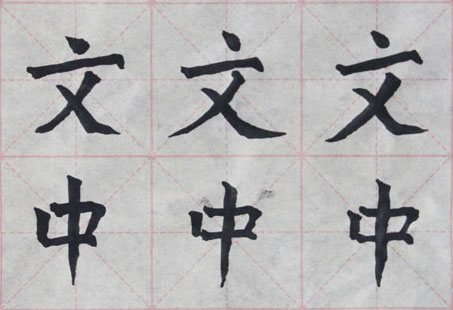 文文文
中中中